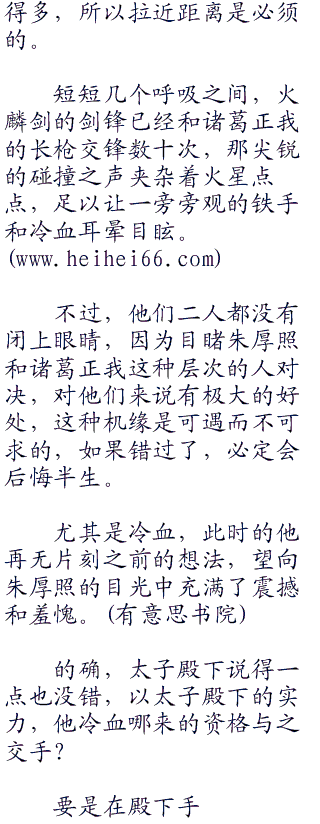 得多，所以拉近距离是必须
的。
短短几个呼吸之间，火
麟剑的剑锋已经和诸葛正我
的长枪交锋数十次，那尖锐
的碰撞之声夹杂着火星点
点，足以让一旁旁观的铁手
和冷血耳晕目眩。
(www.heihei66.com)
不过，他们二人都没有
闭上眼睛，因为目睹朱厚照
和诸葛正我这种层次的人对
决，对他们来说有极大的好
处，这种机缘是可遇而不可
求的，如果错过了，必定会
后悔半生。
尤其是冷血，此时的他
再无片刻之前的想法，望向
朱厚照的目光中充满了震撼
和羞愧。(有意思书院)
的确，太子殿下说得一
点也没错，以太子殿下的实
力，他冷血哪来的资格与之
交手？
要是在殿下手